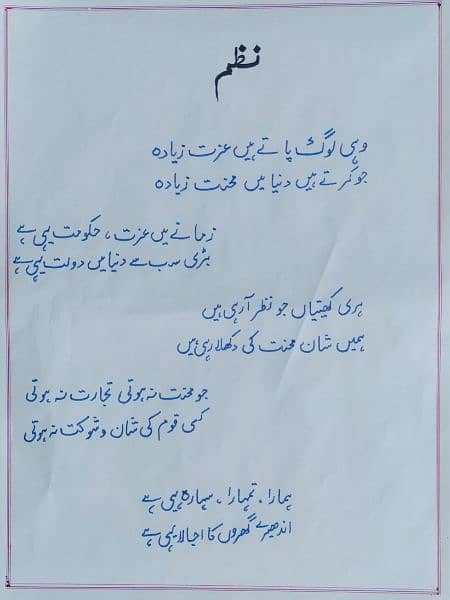 نظم
وہی لوگ پاتے ہیں عزت زیادہ
جو کرتے ہیں دنیا میں محنت زیادہ
زمانے میں عزت، حکومت یہی ہے
بڑی سب سے دنیا میں دولت یہی ہے
ہری کھیتیاں جو نظر آرہی ہیں
ہمیں شان محنت کی دکھلا رہی ہیں
جو محنت نہ ہوتی تجارت نہ ہوتی
کسی قوم کی شان و شوکت نہ ہوتی
ہمارا، تمہارا، سہارہ یہی ہے
اندھیرے گھروں کا اجالا یہی ہے